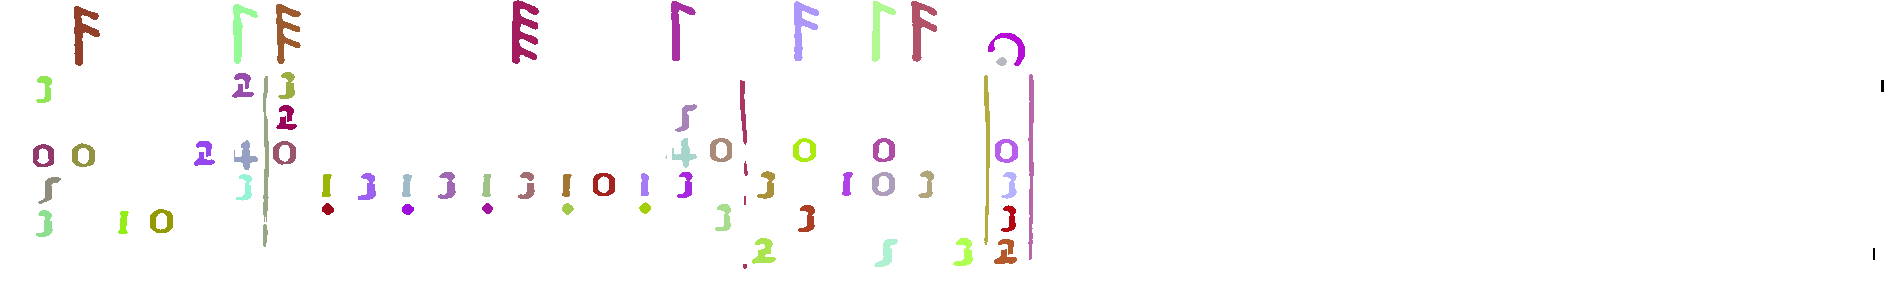 3 2 3
2 5
0 0 2 4 0 4 0 0 0 0
5 3 1 3 1 3 1 3 1 0 1 3 3 1 0 3 3
3 1 0 3 3 3
2 5 3 2